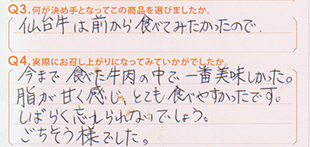 Q3.何が決め手となってこの商品を選びましたか。
仙台牛は前から食べてみたかったので
Q4.実際にお召し上がりになってみていかがでしたか
今まで食べた牛肉の中で、一番美味しかった。
脂が甘く感じ、とても食べやすかったです。
しばらく忘れられないでしょう。
ごちそう様でした。